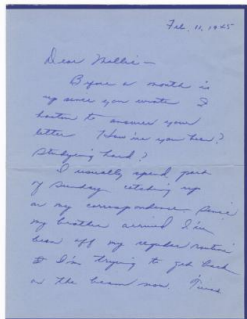 Feb. 11, 1945
Dear Millie –
Before a month is
up since you wrote I
hasten to answer your
letter. How've you been?
Studying hard?
I usually spend part
of Sunday catching up
on my correspondence – since
my brother arrived I've
been off my regular routine
& I'm trying to get back
on the beam now.